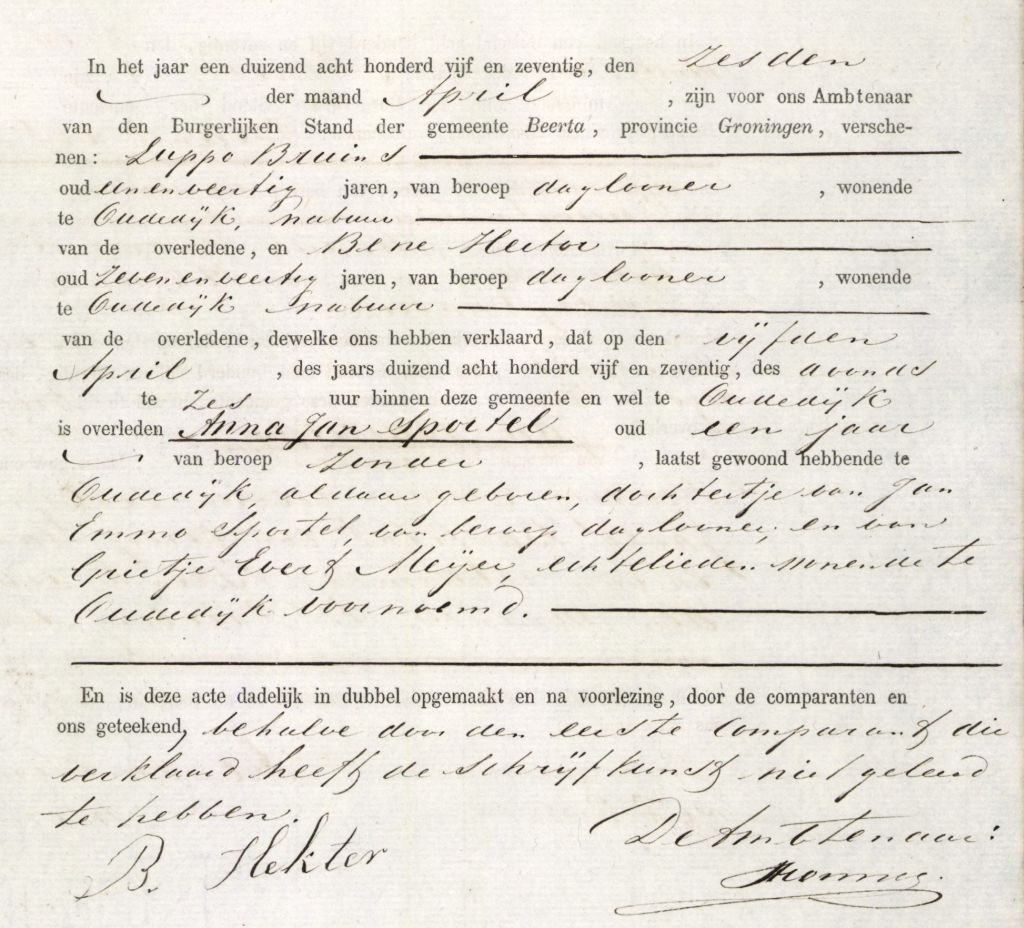 In het jaar een duizend acht honderd vijf en zeventig, den zesden
der maand April, zijn voor ons Ambtenaar
van den Burgerlijken Stand der gemeente Beerta, provincie Groningen, versche-
nen: Luppo Bruins
oud eenenveertig jaren, van beroep daglooner, wonende
te Oudedijk, nabuur
van de overledene, en Bene Hector
oud zevenenveertig jaren, van beroep daglooner, wonende
te Oudedijk nabuur
van de overledene, dewelke ons hebben verklaard, dat op den vijfden
April, des jaars duizend acht honderd vijf en zeventig, des avonds
te zes uur binnen deze gemeente en wel te Oudedijk
is overleden Anna Jan Sportel oud een jaar
van beroep zonder, laatst gewoond hebbende te
Oudedijk, aldaar geboren, dochtertje van Jan
Emmo Sportel, van beroep daglooner, en van
Grietje Evert Meijer, echtelieden wonende te
Oudedijk voornoemd.
En is deze acte dadelijk in dubbel opgemaakt en na voorlezing, door de comparanten en
ons geteekend, behalve door den eerste Comparant die
verklaard heeft de schrijfkunst niet geleerd
te hebben.
De Ambtenaar:
B. Hekter